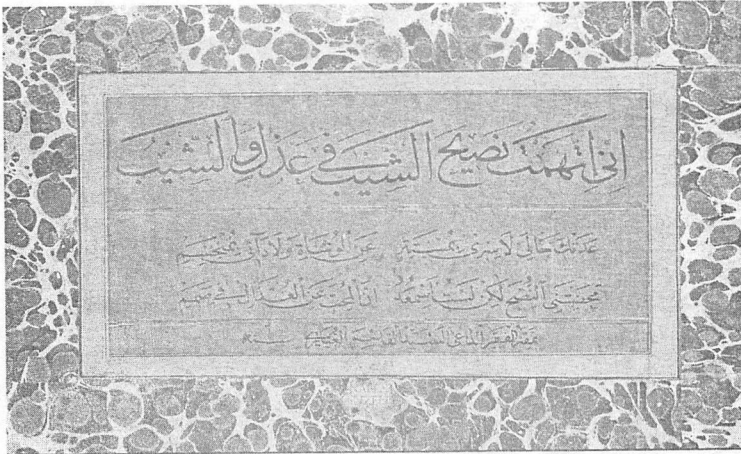 اني اتهمت نصيح الشيب في عذل والشيب
عدتك حالي لا سري بمستتر عن الوشاة ولا دائي بمنحسم
محضتني النصح لكن لست اسمعه ان المحب عن العذال في صمم